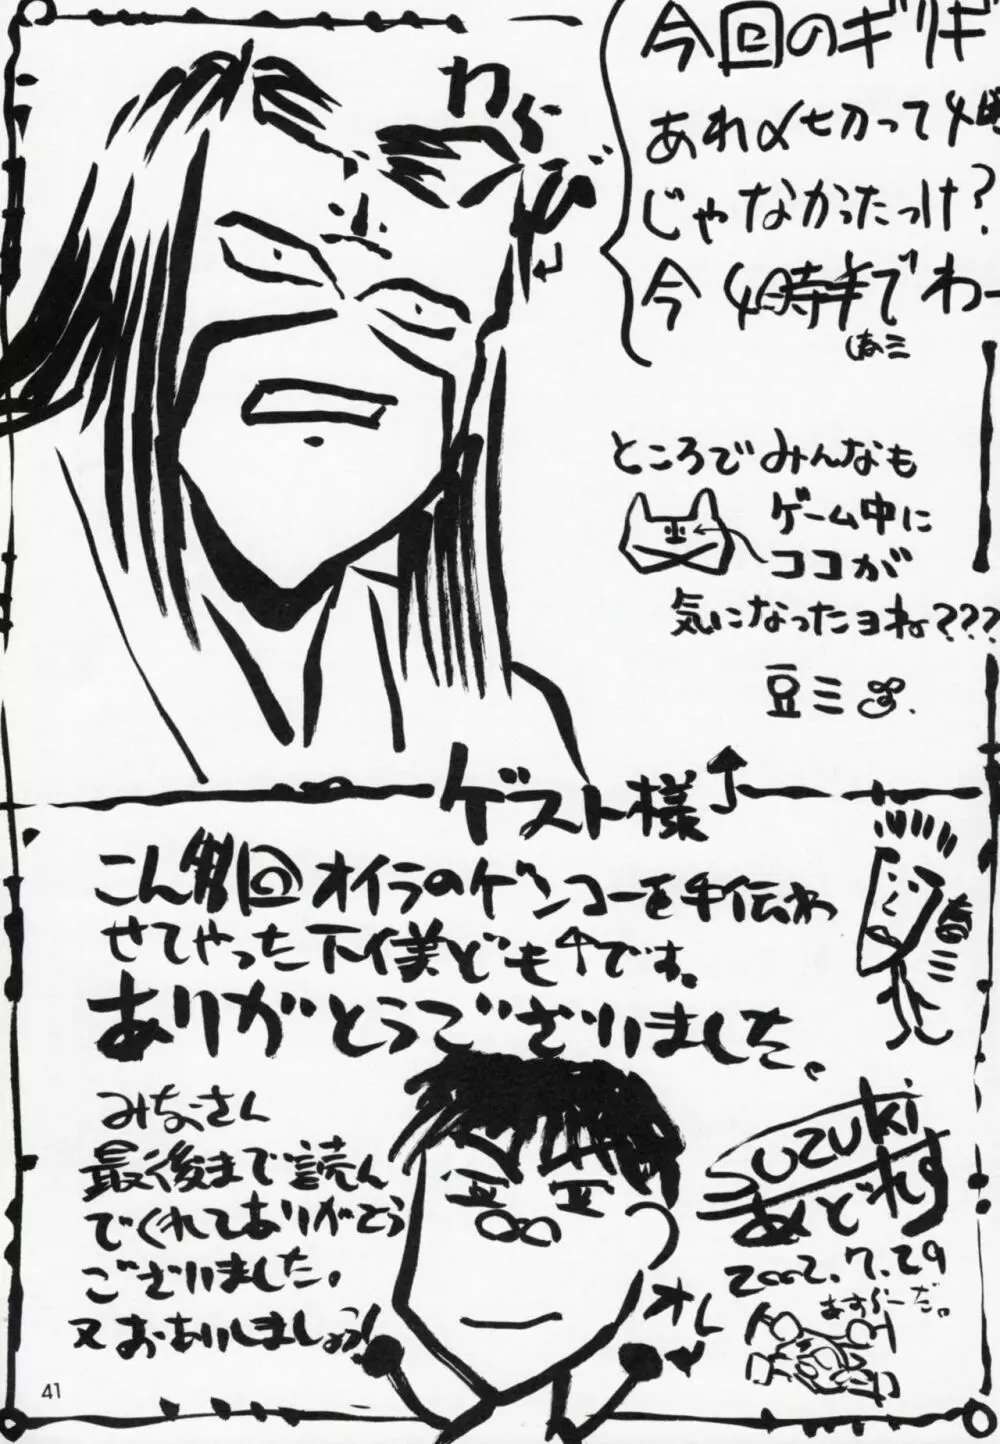 今回のギリギ
あれ〆切って4時
じゃなかったっけ?
今4時半でわー
わくび
ところでみんなも
ゲーム中に
ココが
気になったヨね???
豆ミ
ゲスト様↑
こん回オイラのゲンコーを手伝わ
せてやった下イ美ども↑です。
ありがとうございました。
春ミ
みなさん
最後まで読ん
でくれてありがとう
ございました。
又おあいしましょう!
オレ
SUZUKi
あどれす
2002.7.29
41